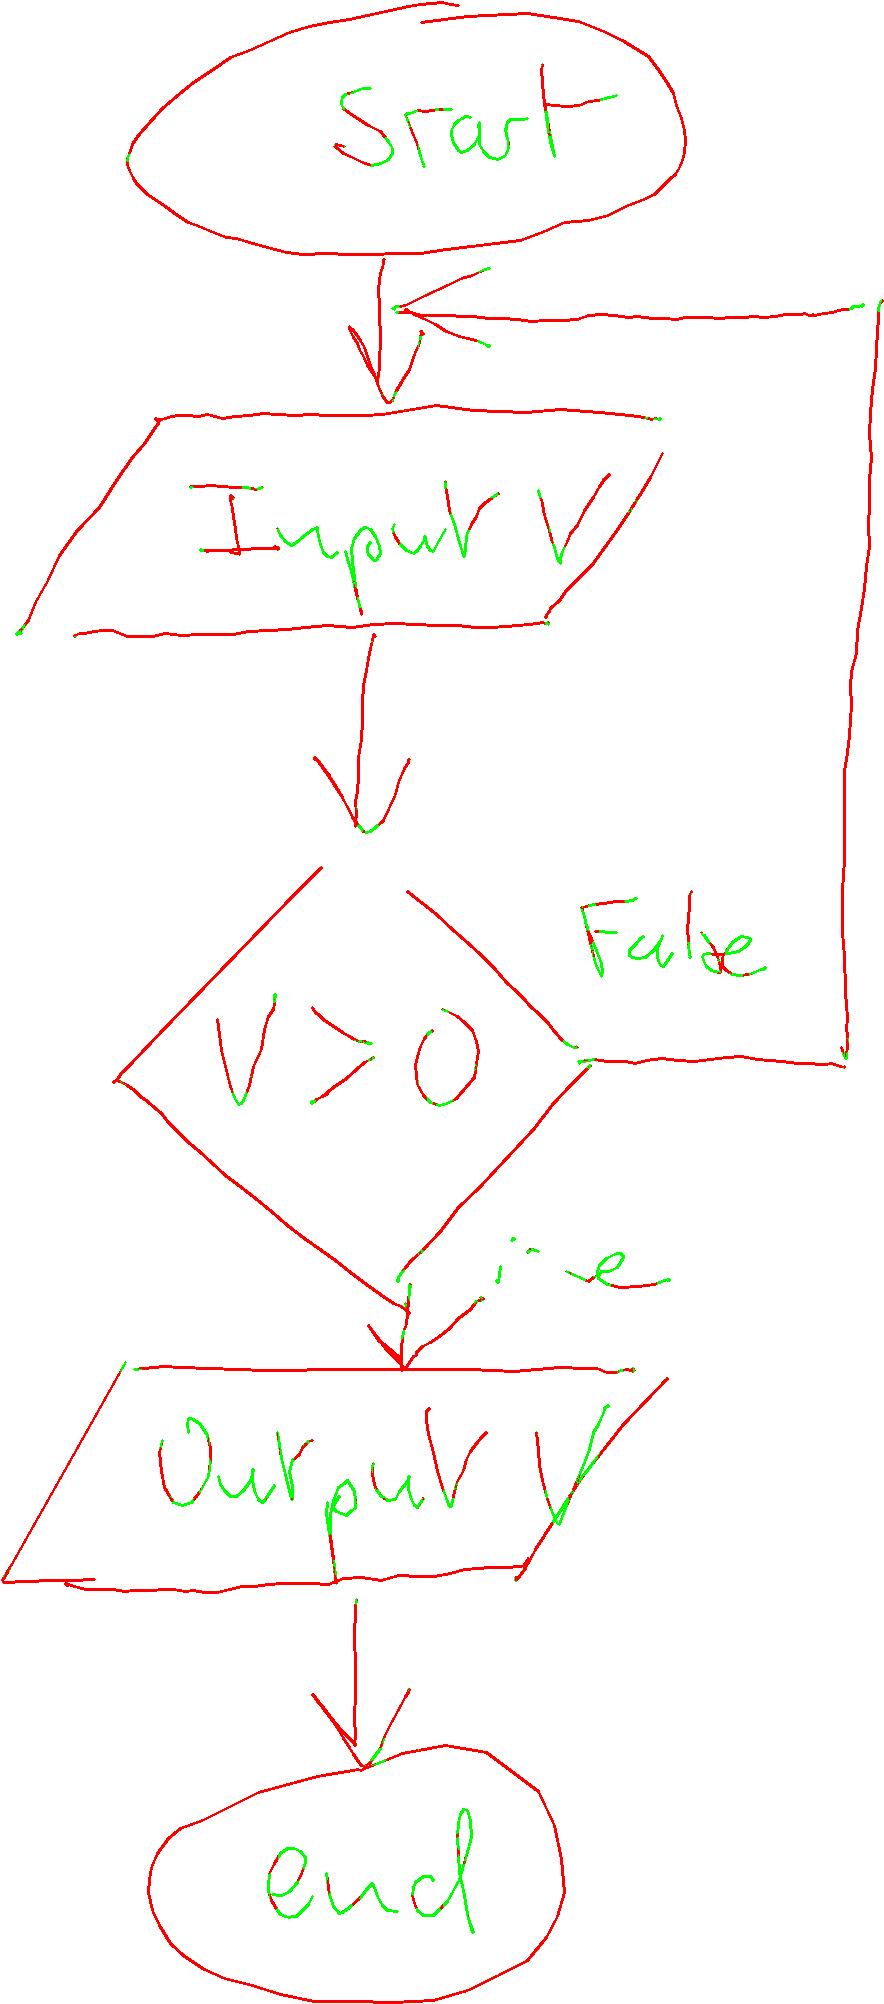 Start
Input V
False
V > 0
Output V
end